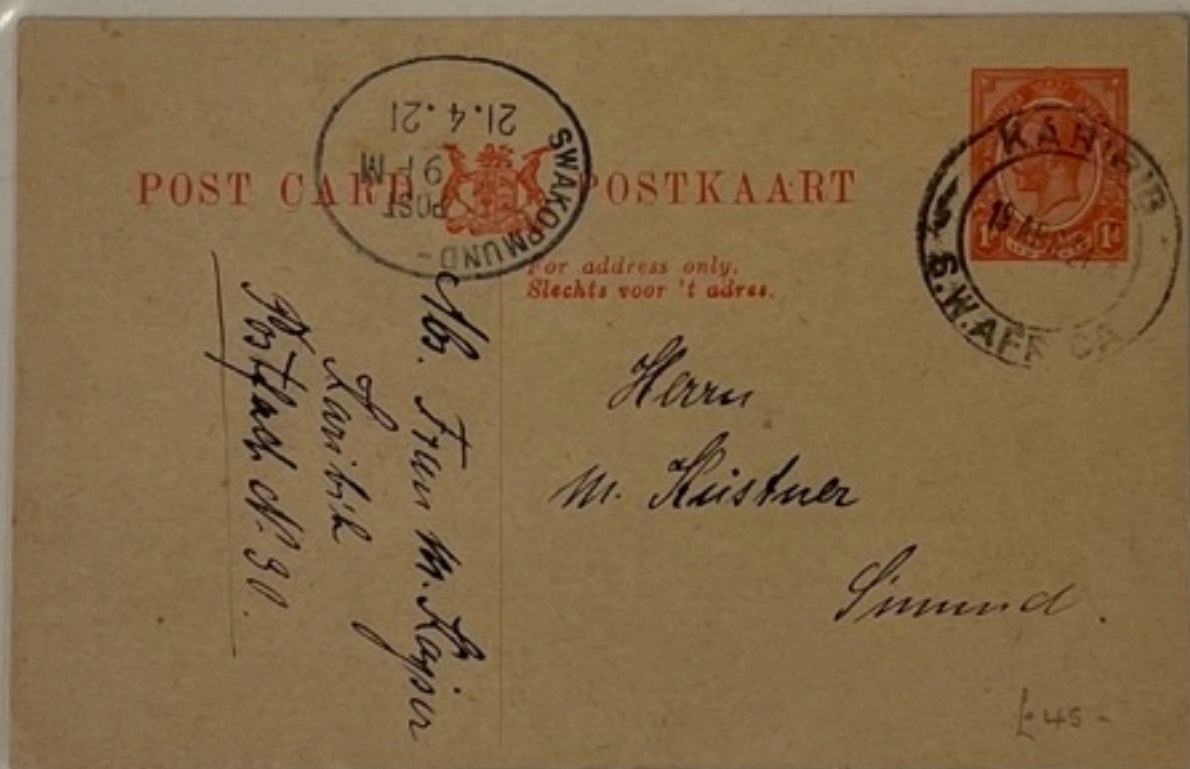 POST CARD POSTKAART
For address only.
Slechts voor 't adres.
SWAKOPMUND
21.4.21
9 PM
POST
KARIBIB
S.W. AFRICA
1d 1d
Herrn
M. Küstner
Abs. Frau M.
Karibib
Postfach N. 30.
£45-